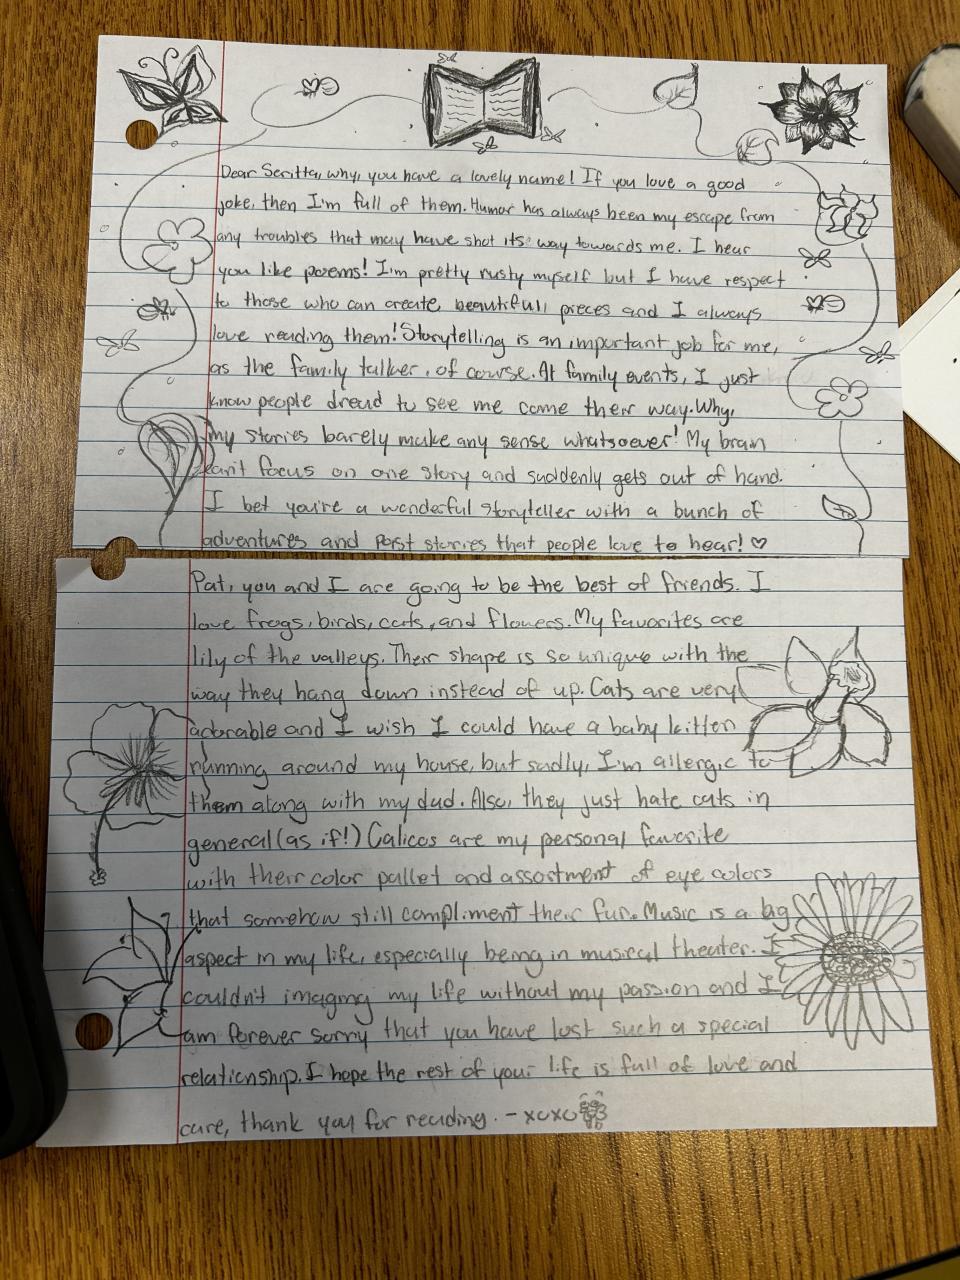 Dear Scritta, why, you have a lovely name! If you love a good
joke, then I'm full of them. Humor has always been my escape from
any troubles that may have shot its way towards me. I hear
you like poems! I'm pretty rusty myself but I have respect
to those who can create beautifull pieces and I always
love reading them! Storytelling is an important job for me,
as the family talker, of course. At family events, I just
know people dread to see me come their way. Why,
my stories barely make any sense whatsoever! My brain
can't focus on one story and suddenly gets out of hand.
I bet you're a wonderful storyteller with a bunch of
adventures and past stories that people love to hear! ♡
Pat, you and I are going to be the best of friends. I
love frogs, birds, cats, and flowers. My favorites are
lily of the valleys. Their shape is so unique with the
way they hang down instead of up. Cats are very
adorable and I wish I could have a baby kitten
running around my house, but sadly, I'm allergic to
them along with my dad. Also, they just hate cats in
general (as if!) Calicos are my personal favorite
with their color pallet and assortment of eye colors
that somehow still compliment their fur. Music is a big
aspect in my life, especially being in musical theater. I
couldn't imaging my life without my passion and I
am forever sorry that you have lost such a special
relationship. I hope the rest of your life is full of love and
care, thank you for reading. - xoxo